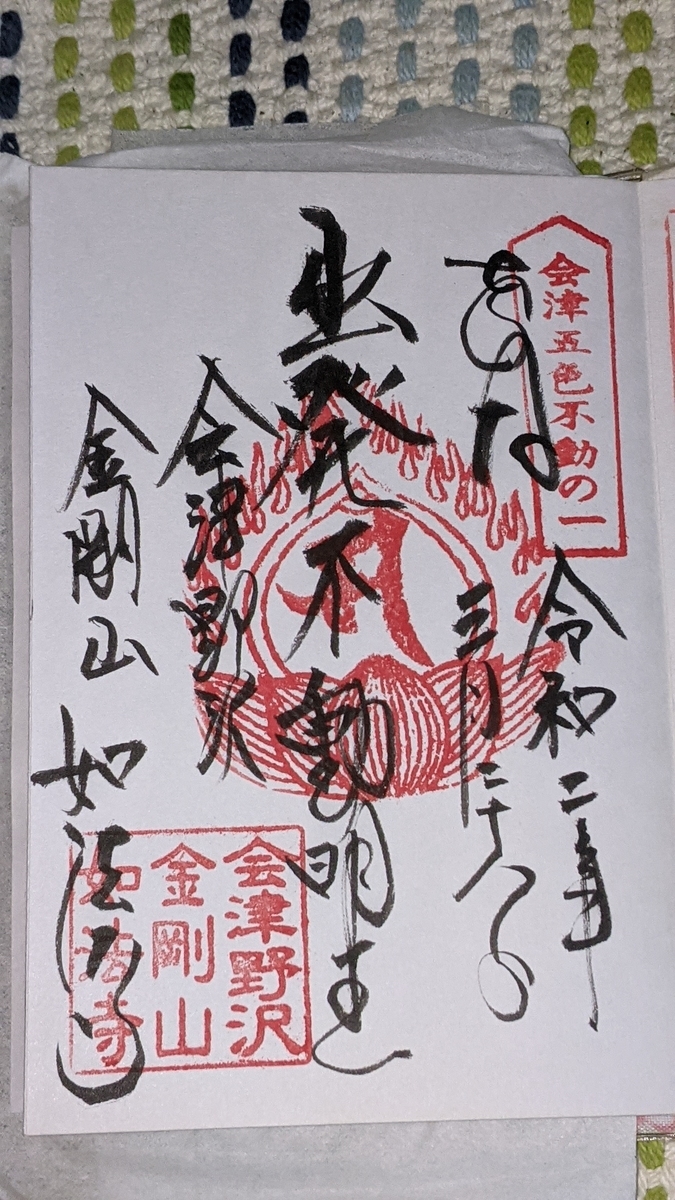 会津五色不動の一
令和二年
三月二十八日
出発不動明王
会津野沢
金剛山 如法寺
会津野沢
金剛山
如法寺